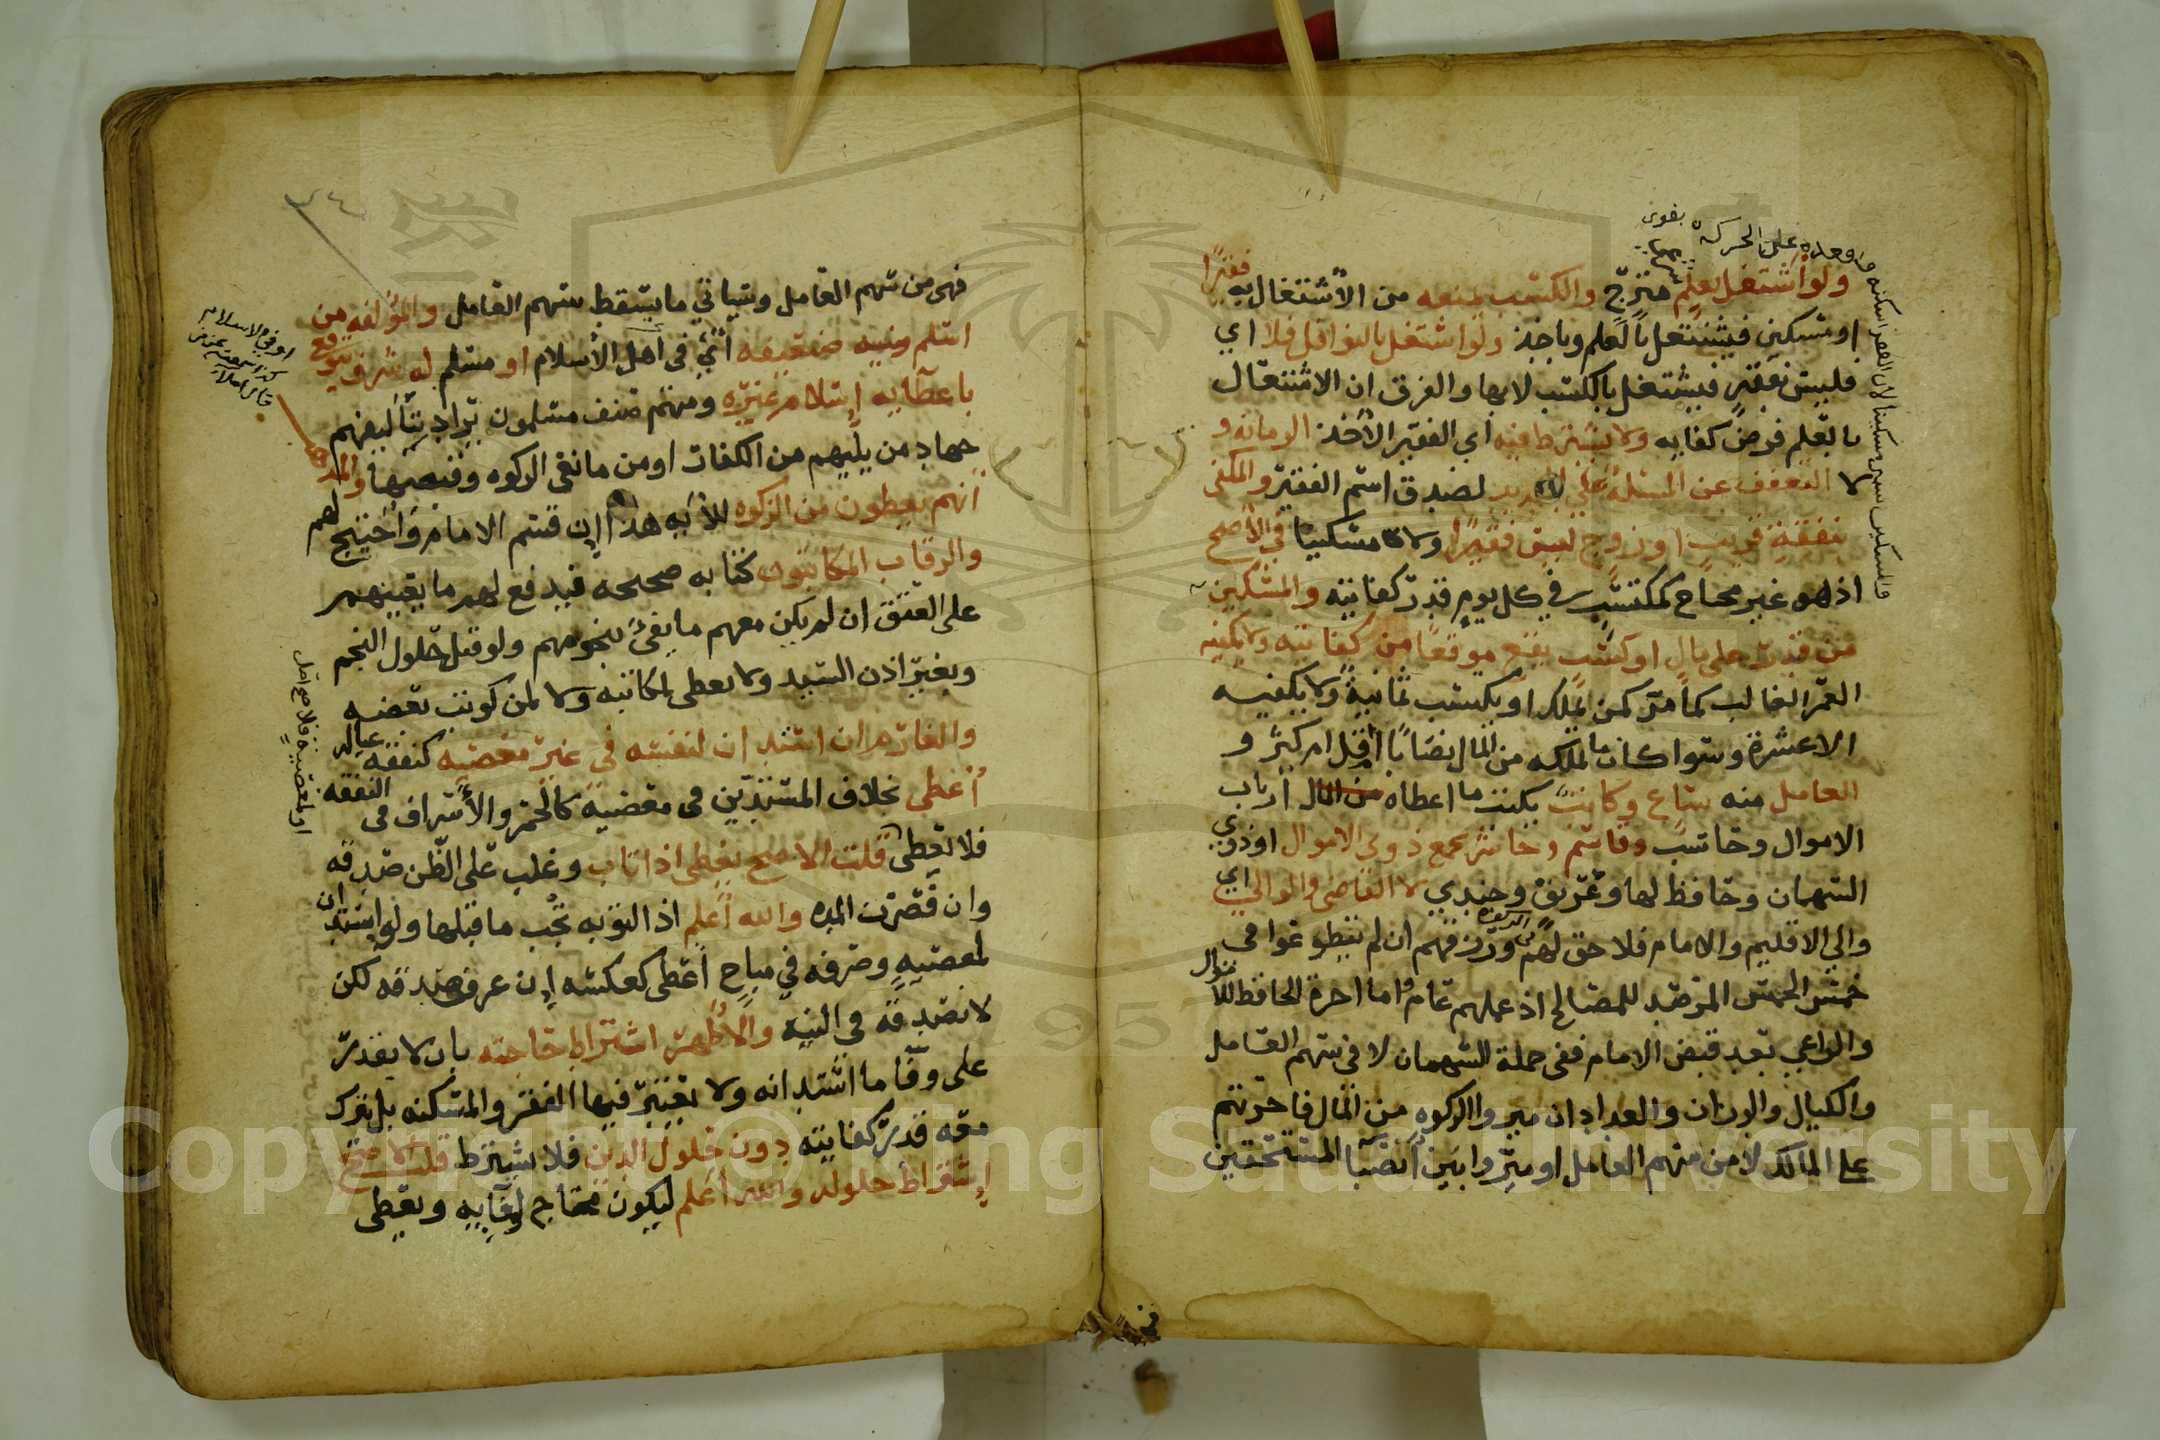 ولو اشتغل بعلم متزجّ والكسب يمنعه من الأشتغال به فقيرًا
او مسكين فيشتغل بالعلم وياخذ ولو اشتغل بالنوافل فلا اي
فليس بفقير فيشتغل بالكسب لا بها والفرق ان الاشتغال
بالعلم فرض كفايه ولا يشترط فيه اي الفقير الأخذ الزمانه و
لا التعفف عن المسئلة على الجديد لصدق اسم الفقير والمكفى
بنفقة قريب او زوج ليس فقيرًا ولا مسكينًا في الأصح
اذ هو غير محتاج كمكتسب في كل يوم قدر كفايته والمسكين
من قدر على مال او كسب يقع موقعًا من كفايته ولا يكفيه
العمر الغالب كما مرّ كمن يملك او يكسب ثمانية ولا يكفيه
الا عشرة وسوا كان ما يملكه من المال نصابًا أقل ام كثر و
العامل منه ساع وكاتب يكتب ما اعطاه من المال أرباب
الاموال وحاسب وقاسم وحاشر يجمع ذوي الاموال او ذوي
السهمان وحافظ لها وعريف وجندي لا القاضي والوالي اي
والي الاقليم والامام فلا حق لهم في الزكوة ورزقهم ان لم يتطوعوا في
خمس الخمس المرصد للمصالح اذ عملهم عام واما اجرة الحافظ للأموال
والراعي بعد قبض الامام ففي جملة السهمان لا في سهم العامل
والكيال والوزان والعداد ان ميزوا الزكوه من المال فاجرتهم
على المالك لا من سهم العامل او ميزوا بين أنصبا المستحقين
فهى من سهم العامل وسياتي ما يسقط سهم العامل والمؤلفه من
اسلم ونيته ضعيفه أي في اهل الأسلام او مسلم له شرف يتوقع
باعطائه إسلام غيره ومنهم صنف مسلمون يراد بتأليفهم
جهاد من يليهم من الكفار او من مانعي الزكوه وقبضها والمذهب
انهم يعطون من الزكوه للأيه هذا إن قسم الامام وأحتيج لهم
والرقاب المكاتبون كتابه صحيحه فيدفع لهم ما يعينهم
على العتق ان لم يكن معهم ما يفي بنجومهم ولو قبل حلول النجم
وبغير اذن السيد ولا يعطى مكاتبه ولا لمن كوتب بعضه
والغارم ان استدان لنفسه في غير معصيه كنفقة عياله
أعطى بخلاف المستدين في معصيه كالخمر والأسراف في النفقه
فلا يعطى قلت الاصح يعطى اذا تاب وغلب على الظن صدقه
وان قصرت المده والله أعلم اذ التوبه تجب ما قبلها ولو استدان
لمعصيه وصرفه في مباح أعطى كعكسه إن عرف صدقه لكن
لا نصدقه في النيه والأظهر اشتراط حاجته بان لا يقدر
على وفا ما استدانه ولا يعتبر فيها الفقر والمسكنه بل يترك
معه قدر كفايته دون حلول الدين فلا يشترط قلت الاصح
إشتراط حلوله والله أعلم ليكون محتاج لوفايه ويعطى